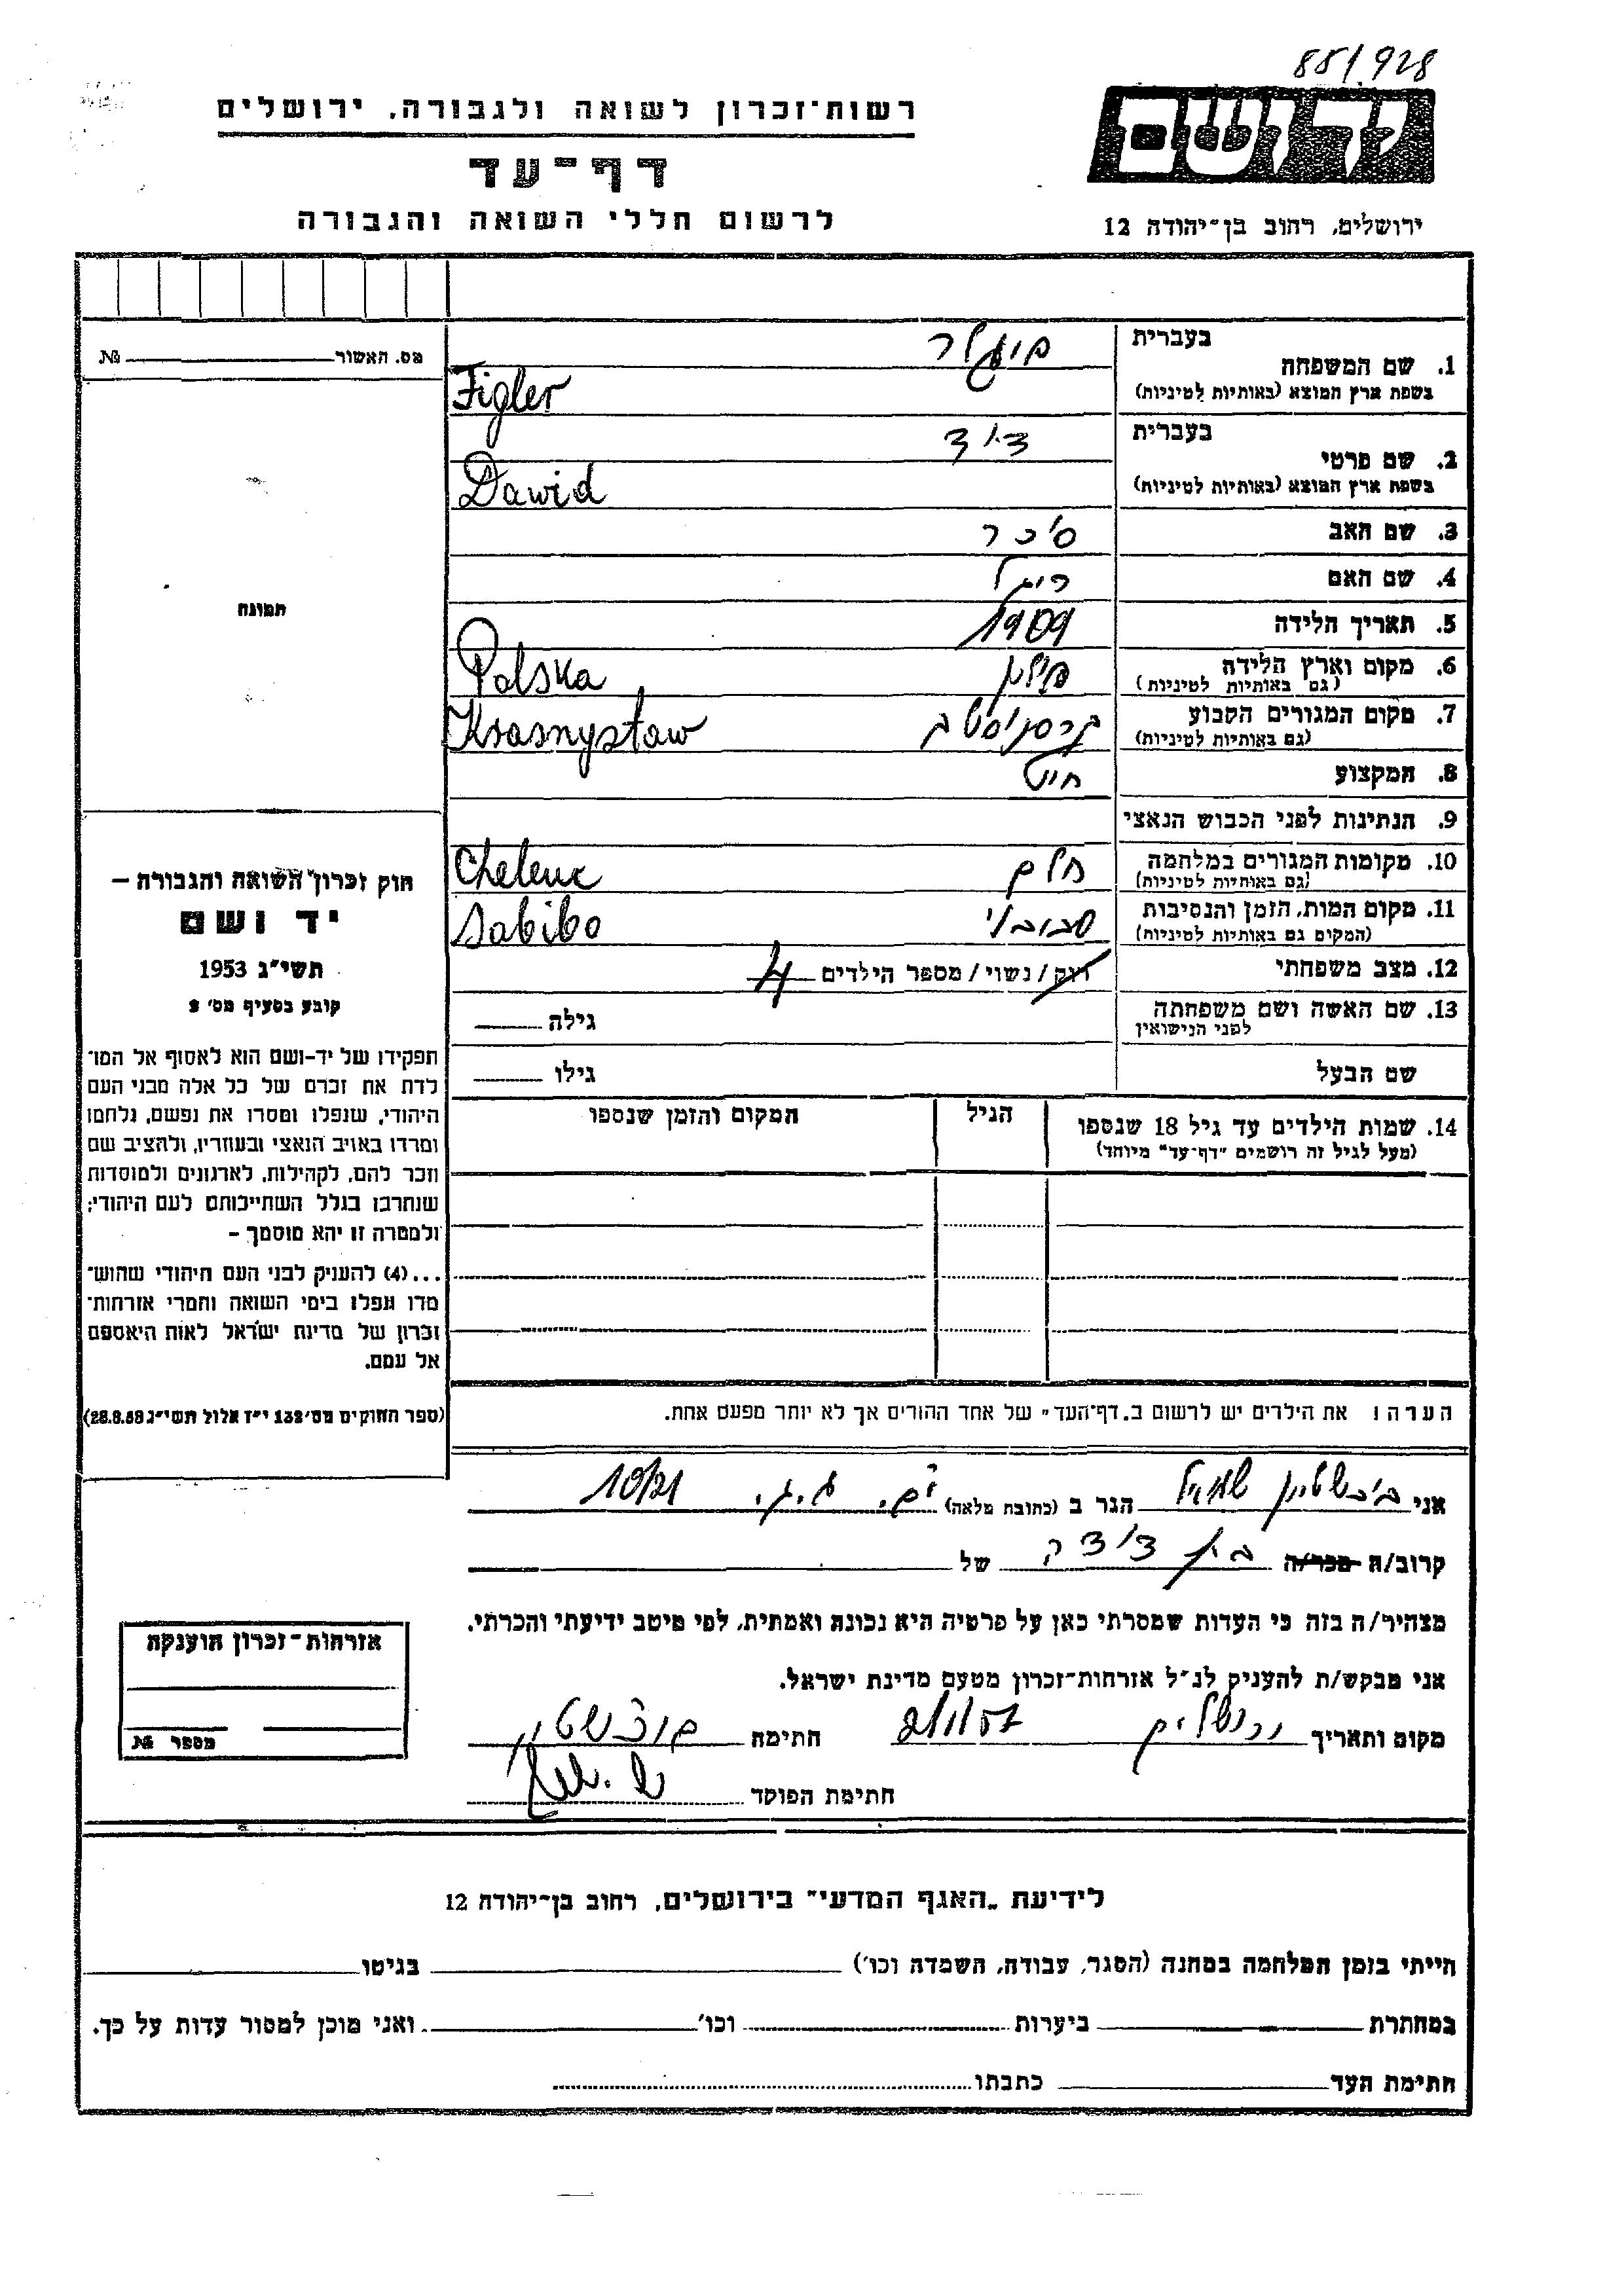 85/928
רשות־זכרון לשואה ולגבורה, ירושלים
דף־עד
לרשום חללי השואה והגבורה
ידושם
ירושלים, רחוב בן־יהודה 12
מס. האשור № 
תמונה
חוק זכרון השואה והגבורה –
יד ושם
תשי"ג 1953
קובע בסעיף מס' 2
תפקידו של יד-ושם הוא לאסוף אל המו־
לדת את זכרם של כל אלה מבני העם
היהודי, שנפלו ומסרו את נפשם, נלחמו
ומרדו באויב הנאצי ובעוזריו, ולהציב שם
וזכר להם, לקהילות, לארגונים ולמוסדות
שנחרבו בגלל השתייכותם לעם היהודי;
ולמטרה זו יהא מוסמך –
...(4) להעניק לבני העם היהודי שהוש־
מדו ונפלו בימי השואה והמרי אזרחות־
זכרון של מדינת ישראל לאות היאספם
אל עמם.
(ספר החוקים מס' 132 י"ז אלול תשי"ג 28.8.53)
בעברית
1. שם המשפחה פיגלר
בשפת ארץ המוצא (באותיות לטיניות) Figler
בעברית
2. שם פרטי דוד
בשפת ארץ המוצא (באותיות לטיניות) Dawid
3. שם האב
4. שם האם
5. תאריך הלידה 1909
6. מקום וארץ הלידה פולין Polska
(גם באותיות לטיניות)
7. מקום המגורים הקבוע קרסניסטב Krasnystaw
(גם באותיות לטיניות)
8. המקצוע חייט
9. הנתינות לפני הכבוש הנאצי
10. מקומות המגורים במלחמה חלם Chelem
(גם באותיות לטיניות)
11. מקום המות, הזמן והנסיבות סביבור Sabibo
(המקום גם באותיות לטיניות)
12. מצב משפחתי רווק/נשוי/מספר הילדים 4
13. שם האשה ושם משפחתה גילה
לפני הנישואין
שם הבעל גילו
14. שמות הילדים עד גיל 18 שנספו הגיל המקום והזמן שנספו
(מעל לגיל זה רושמים "דף־עד" מיוחד)
הערה: את הילדים יש לרשום ב„דף־העד" של אחד ההורים אך לא יותר מפעם אחת.
אני שמואל הגר ב (כתובת מלאה) 10/21
קרוב/ה מכר/ה בן דודה של
מצהיר/ה בזה כי העדות שמסרתי כאן על פרטיה היא נכונה ואמתית, לפי מיטב ידיעתי והכרתי.
אני מבקש/ת להעניק לנ"ל אזרחות־זכרון מטעם מדינת ישראל.
מקום ותאריך ירושלים חתימה
חתימת הפוקד
אזרחות־זכרון הוענקה
מספר №
לידיעת „האגף המדעי" בירושלים, רחוב בן־יהודה 12
הייתי בזמן המלחמה במחנה (הסגר, עבודה, השמדה וכו') בגיטו
במחתרת ביערות וכו' ואני מוכן למסור עדות על כך.
חתימת העד כתבתו